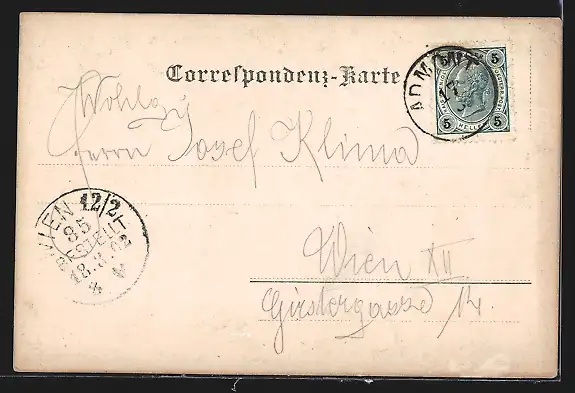 Correspondenz-Karte
ADMONT
5 5
HELLER
5 5
Wohlg.
Herrn Josef Klima
WIEN 12/2
BESTELLT
Wien XII
Girstergasse 14.